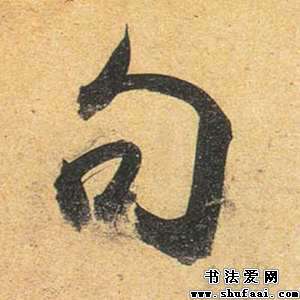 句
书法爱网
www.shufaai.com